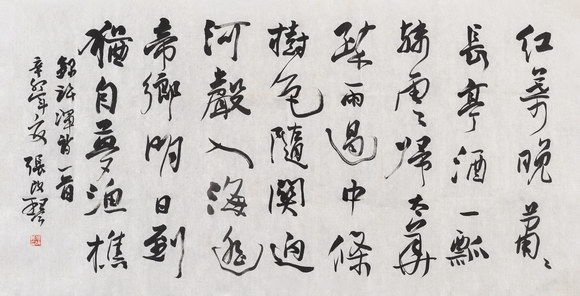 红葉晚蕭々
長亭酒一瓢
殘雲歸太華
疎雨過中條
樹色隨關迥
河聲入海遥
帝鄉明日到
猶自夢漁樵
錄許渾詩一首
辛卯年夏 張改琴